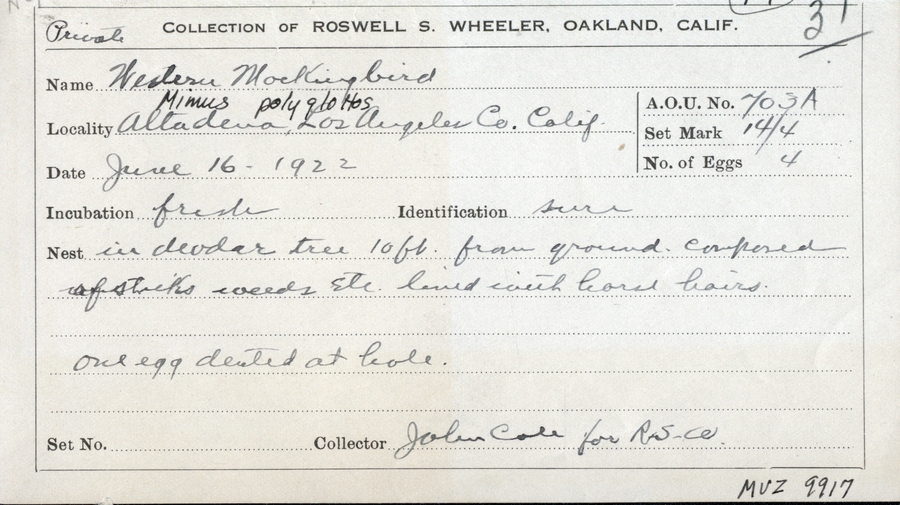 Private
COLLECTION OF ROSWELL S. WHEELER, OAKLAND, CALIF.
Name Western Mockingbird
Mimus polyglottos
Locality Altadena, Los Angeles Co. Calif.
A.O.U. No. 703A
Set Mark 14/4
No. of Eggs 4
Date June 16 - 1922
Incubation fresh Identification sure
Nest in deodar tree 10 ft. from ground. composed
of sticks weeds Etc. lined with horse hairs.
One egg dented at hole.
Set No. Collector John Cole for R-S-W.
MVZ 9917